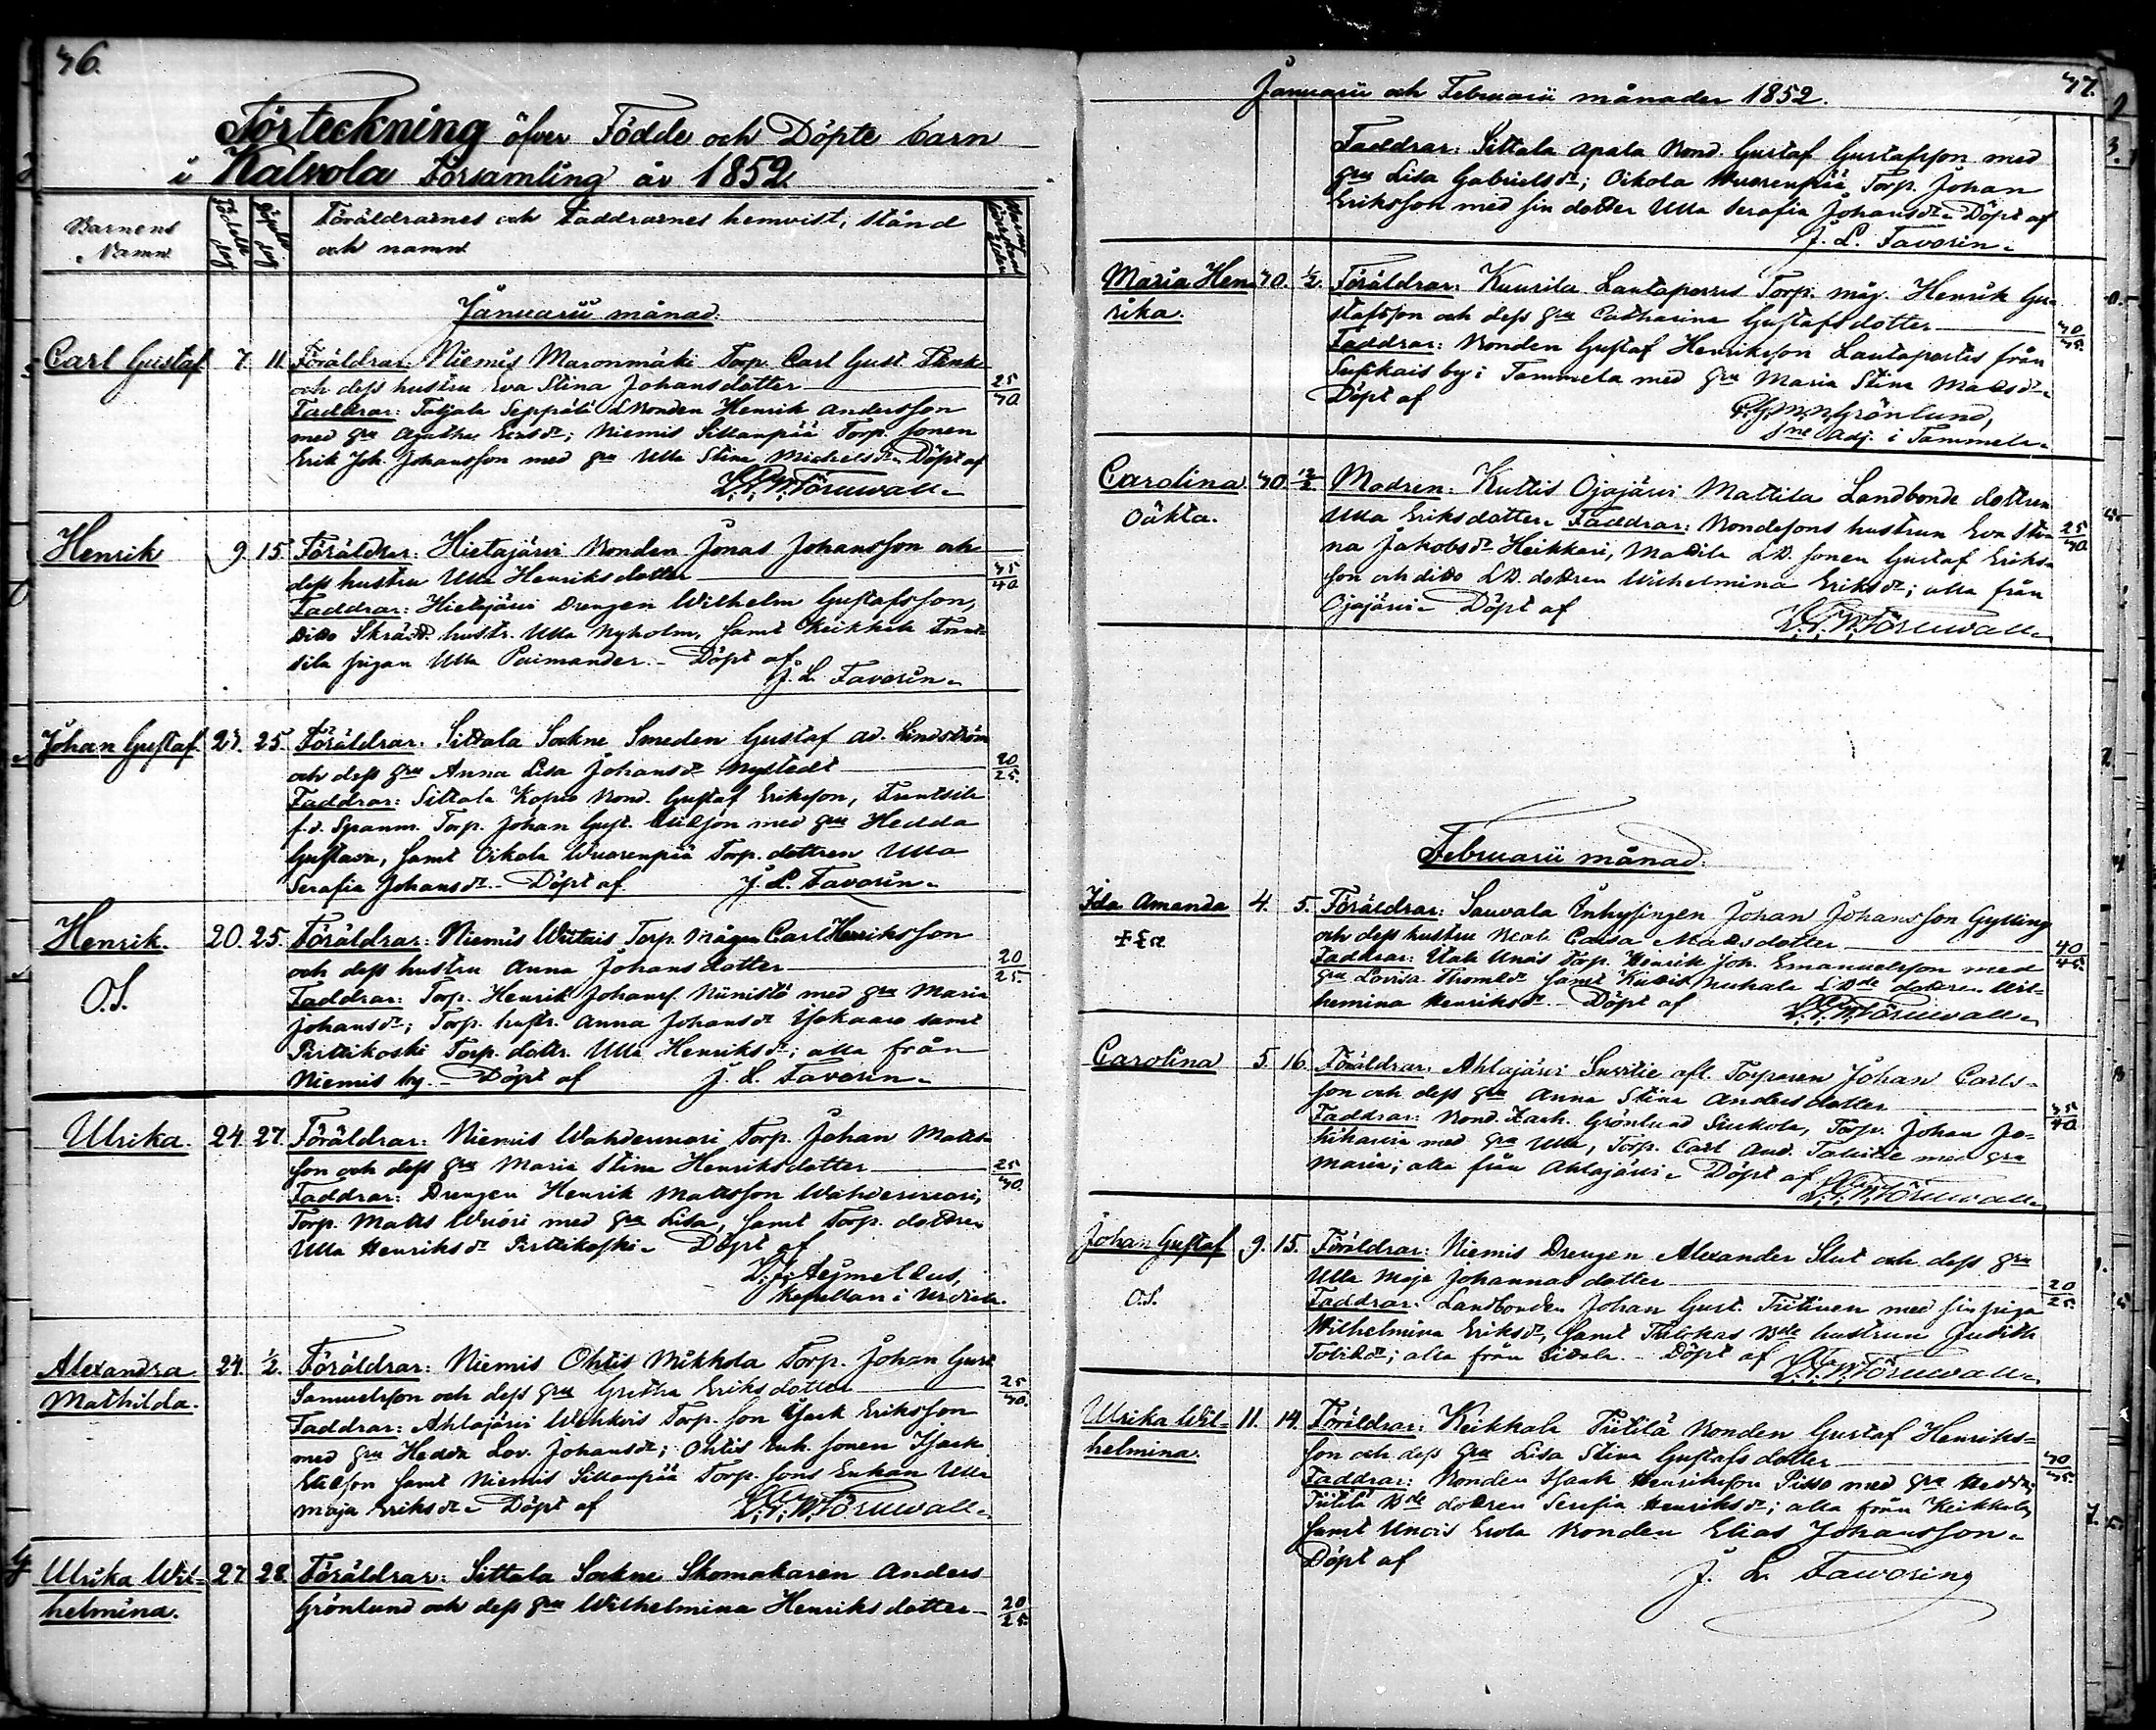 Förteckning öfver Födde och Döpte barn
i Kalvola Församling år 1852.
Barnens Namn
Födelse dag
Döpelse dag
Föräldrarnes och Faddrarnes hemvist, stånd
och namn
Januarii månad.
Carl Gustaf 7. 11. Föräldrar: Niemis Maronmäki Torp. Carl Gust.
och dess hustru Eva Stina Johansdotter 25/30.
Faddrar: Seppälä LBonden Henrik Andersson
med hru Agatha Ericsdr; Niemis Sillanpää Torp. sonen
Erik Joh. Johansson med hru Ulla Stina Michelsdr. Döpt af
Törnwall.
Henrik 9. 15. Föräldrar: Hietajärvi Bonden Jonas Johansson och
dess hustru Ulla Henriksdotter 35/40
Faddrar: Hietajärvi Drengen Wilhelm Gustafsson,
ditto Skrädd. hustr. Ulla Nyholm, samt Keikkala
sila pigan Ulla Paimander. Döpt af
J. L. Favorin.
Johan Gustaf 23. 25. Föräldrar: Sittala Sockne Smeden Gustaf Ad. Lindström
och dess hru Anna Lisa Johansdr Nystedt 20/25.
Faddrar: Sittala Bond. Gustaf Eriksson,
f.d. Spanm. Torp. Johan Gust. med hru Hedda
Gustava, samt Oikola Wuorenpää Torp. dottren Ulla
Serafia Johansdr. Döpt af J. L. Favorin.
Henrik. 20. 25. Föräldrar: Niemis Torp. mågen Carl Henriksson
och dess hustru Anna Johansdotter 20/25.
O.S. Faddrar: Torp. Henrik Johanss. Niinistö med hru Maria
Johansdr; Torp. hustr. Anna Johansdr samt
Pirttikoski Torp. dottr. Ulla Henriksdr; alla från
Niemis by. Döpt af J. L. Favorin.
Ulrika. 24. 27. Föräldrar: Niemis Wahderwuori Torp. Johan Matts-
son och dess hru Maria Stina Henriksdotter 25/30.
Faddrar: Drengen Henrik Mattsson Wahderwuori,
Torp. Matts Wuori med hru Lisa, samt Torp. dottren
Ulla Henriksdr Pirttikoski. Döpt af
Aejmelæus,
Kapellan i Urdiala.
Alexandra 24. 1/2. Föräldrar: Niemis Ohtis Mikkola Torp. Johan Gust
Mathilda. Samuelsson och dess hru Gretha Eriksdotter 25/30.
Faddrar: Ahlajärvi Torp. son Isack Eriksson
med hru Hedda Lov. Johansdr; Ohtis Enk. sonen Isack
samt Niemis Sillanpää Torp. sons Enkan Ulla
Maja Eriksdr. Döpt af Törnwall.
Ulrika Wil- 27. 28. Föräldrar: Sittala Sockne Skomakaren Anders
helmina. Grönlund och dess hru Wilhelmina Henriksdotter 20/25.
Januarii och Februarii månader 1852. 37.
Faddrar: Sittala Apala Bond. Gustaf Gustafsson med
hru Lisa Gabrielsdr; Oikola Wuorenpää Torp. Johan
Eriksson med sin dotter Ulla Serafia Johansdr. Döpt af
J. L. Favorin.
Maria Hen- 30. 1/2. Föräldrar: Kuurila Lautaporras Torp. måg. Henrik Gu-
rika. stafsson och dess hru Catharina Gustafsdotter 30/35.
Faddrar: Bonden Gustaf Henriksson Lautaportas från
by i Tammela med hru Maria Stina Mattsdr.
Döpt af
Grönlund,
adj. i Tammela.
Carolina 30. 12/2. Modren: Kuttis Ojajärvi Mattila Landbonde dottren
Oäkta. Ulla Eriksdotter. Faddrar: Bondesons hustrun Eva Sti- 25/30
na Jakobsdr Heikkari, Mattila LB. sonen Gustaf Eriks-
son och ditto LB. dottren Wilhelmina Eriksdr; alla från
Ojajärvi. Döpt af
Törnwall.
Februarii månad.
Ida Amanda 4. 5. Föräldrar: Sauvala Inhysingen Johan Johansson Gylling
och dess hustru Beata Caisa Mattsdotter 40/45.
Faddrar: Unois Torp. Henrik Joh. Emanuelsson med
hru Lovisa Thomædr samt Kuttis LBde dottren Wil-
helmina Henriksdr. Döpt af Törnwall.
Carolina 5. 16. Föräldrar: Ahlajärvi afl. Torparen Johan Carls-
son och dess hru Anna Stina Andersdotter 35/40
Faddrar: Bond. Zach. Grönlund Torp. Johan Jo-
med hru Ulla, Torp. Carl And. med hru
Maria; alla från Ahlajärvi. Döpt af Törnwall.
Johan Gustaf 9. 15. Föräldrar: Niemis Drengen Alexander Slut och dess hru
Ulla Maja Johannasdotter 20/25.
O.S. Faddrar: Landbonden Johan Gust. med sin piga
Wilhelmina Eriksdr, samt Bde hustrun Judith
alla från Sittala. Döpt af Törnwall.
Ulrika Wil- 11. 14. Föräldrar: Keikkala Tiitilä Bonden Gustaf Henriks-
helmina. son och dess hru Lisa Stina Gustafsdotter 30/35.
Faddrar: Bonden Isaak Henriksson med hru Hedda;
Tiitilä Bde dottren Serafia Henriksdr; alla från Keikkala,
samt Unois Erola Bonden Elias Johansson.
Döpt af
J. L. Favoring